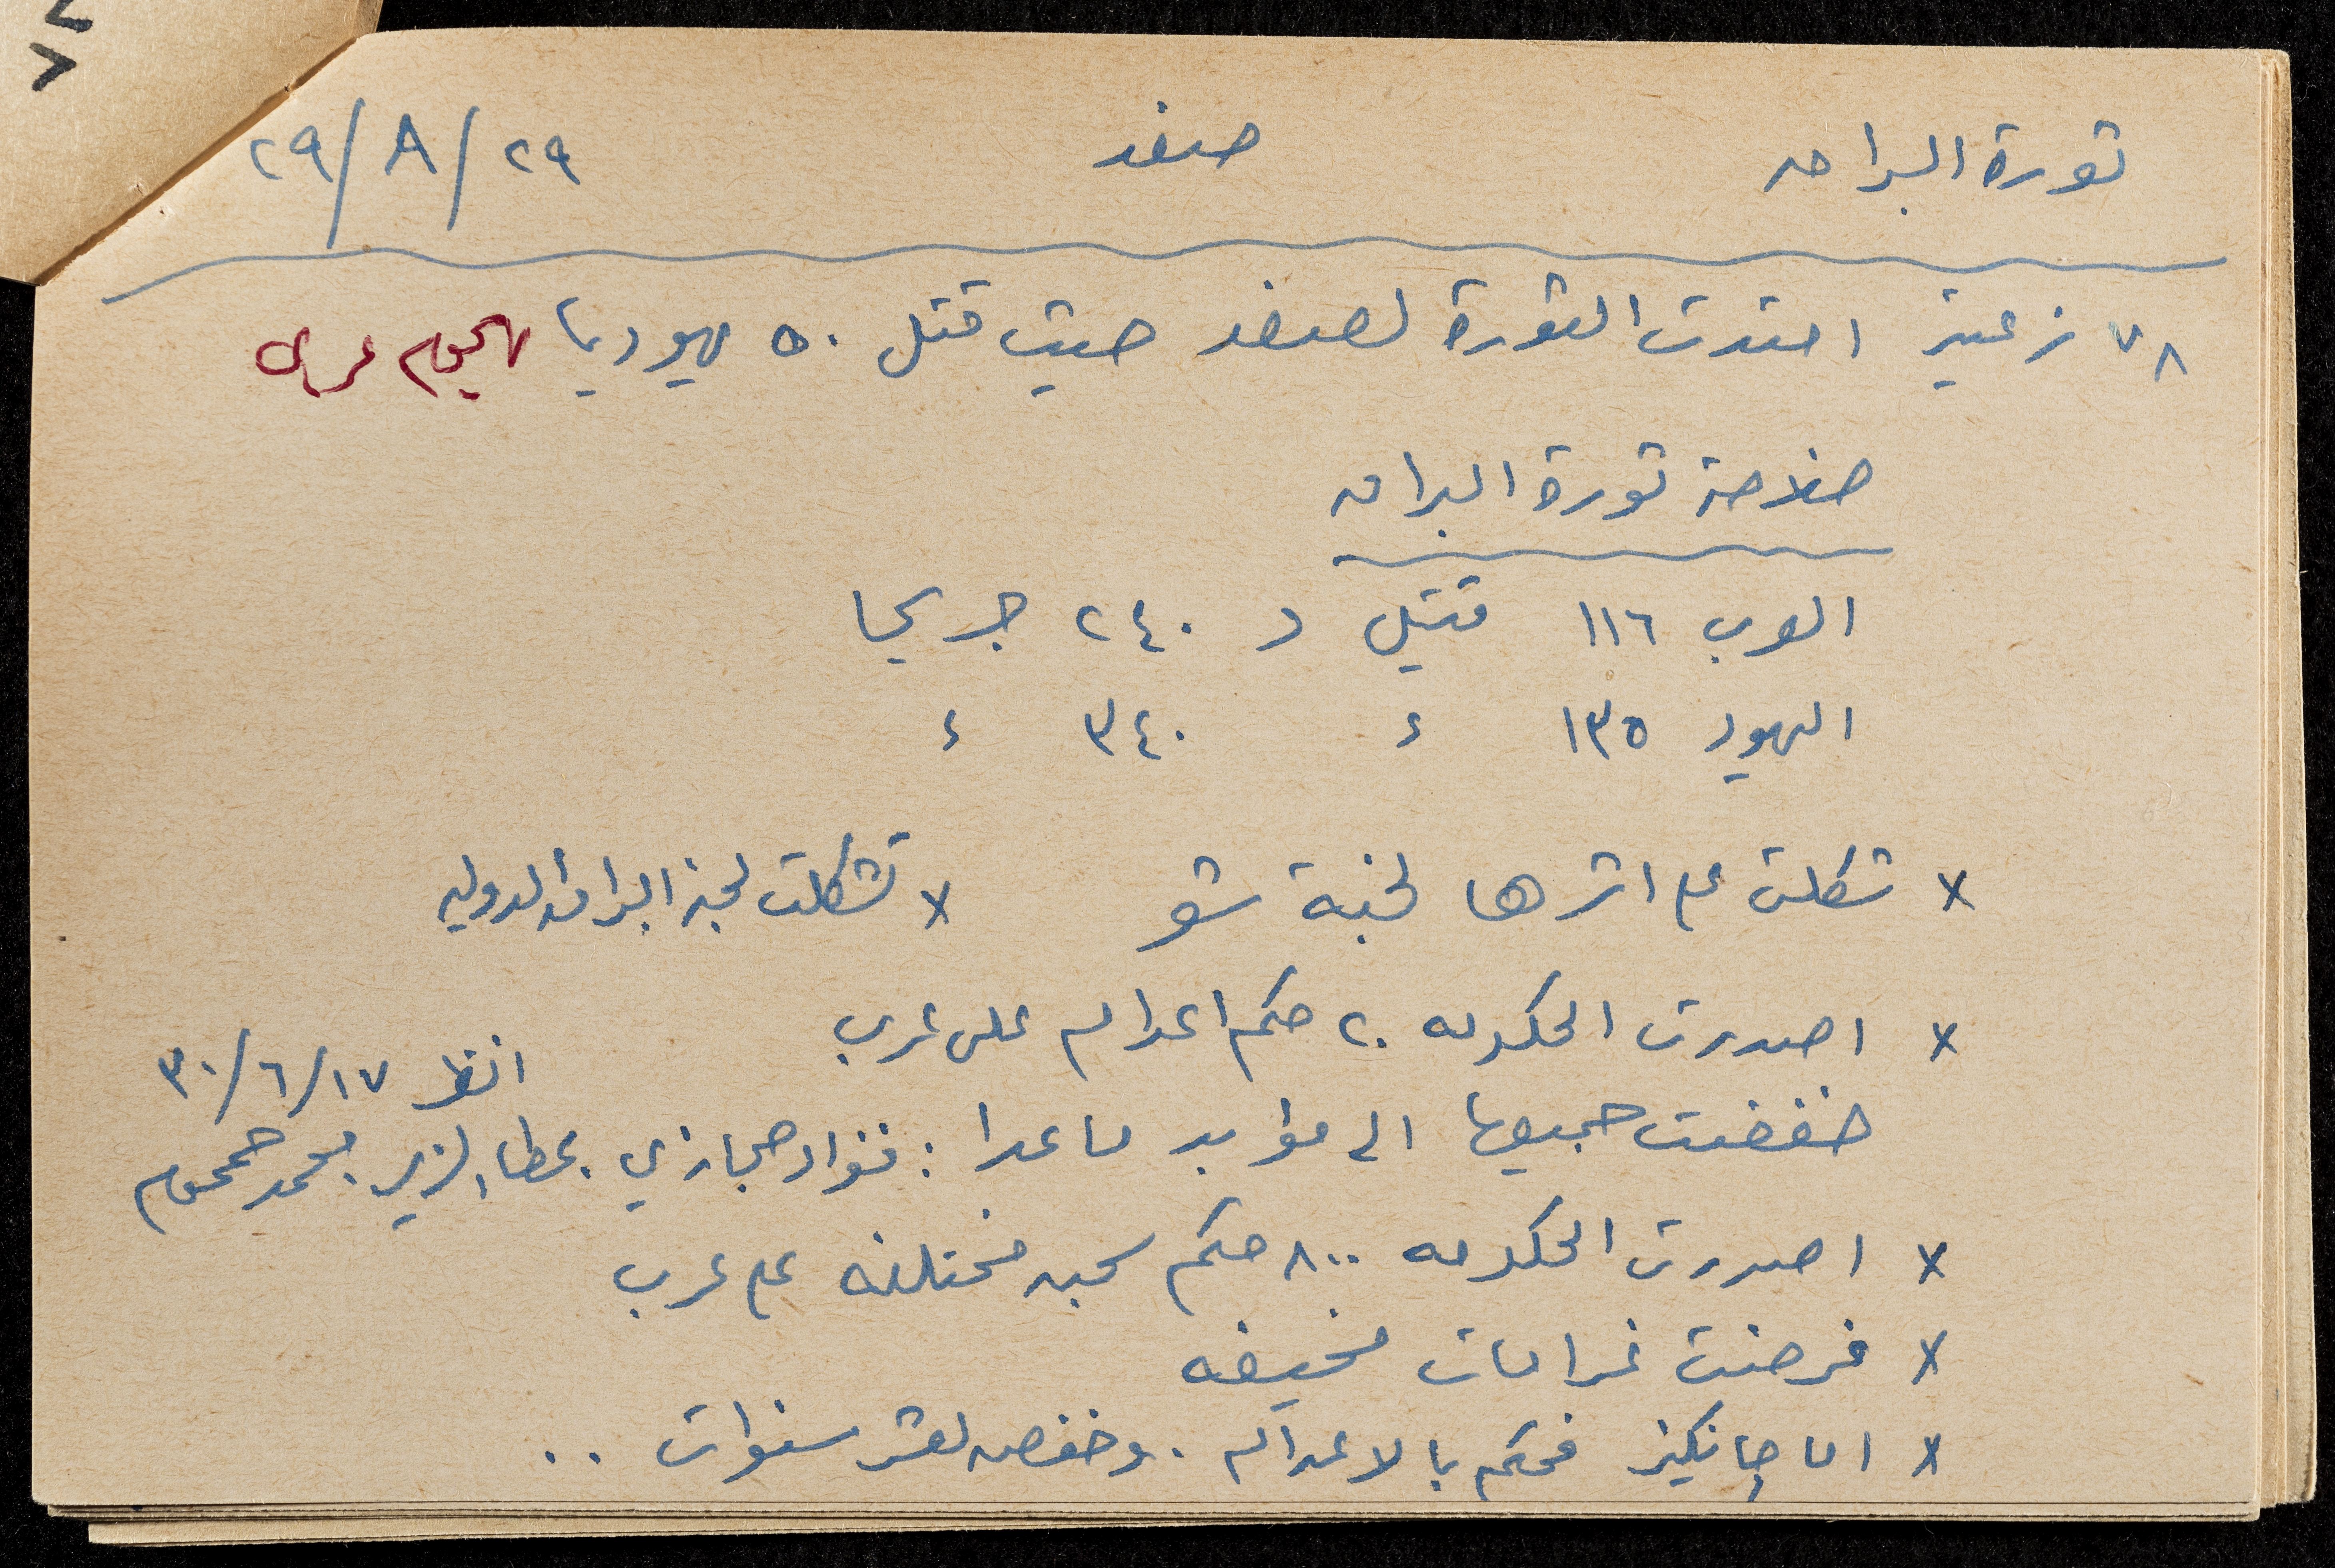 ثورة البراق صفد ٢٩/٨/٢٩
٧٨ زعيتر امتدت الثورة لصفد حيث قتل ٥٠ يهوديا بهجوم عربي
خلاصة ثورة البراق
العرب ١١٦ قتيل و ٢٤٠ جريحا
اليهود ١٣٥ ء ٣٤٠ ء
x شكلت على اثرها لجنة شو x تشكلت لجنة البراق الدوليه
x اصدرت الحكومه ٢٠ حكم اعدام على عرب
انظر ١٧/٦/٣٠
خفضت جميعها الى مؤبد ما عدا : فؤاد حجازي، عطا الزير، محمد جمجوم
x اصدرت الحكومه ٨٠٠ حكم سجن مختلفه على عرب
x فرضت غرامات مخيفه
x اما جانكيز فحكم بالاعدام . وخفض لعشر سنوات ..